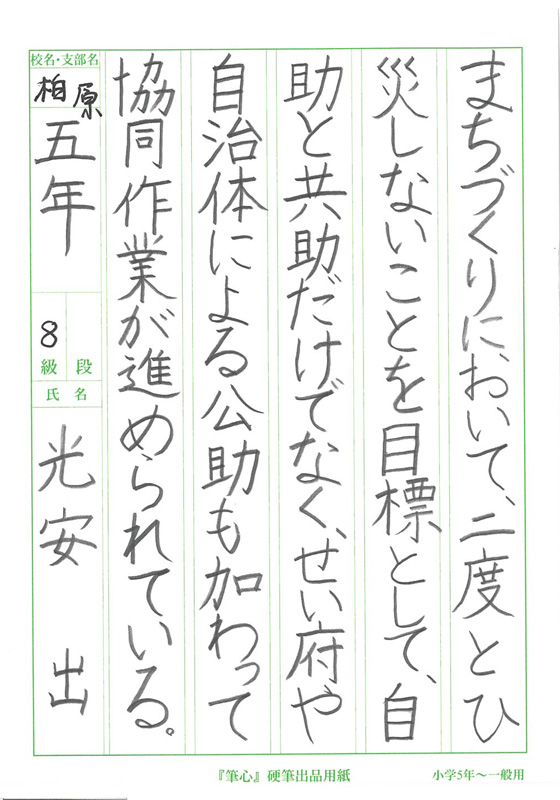 まちづくりにおいて、二度とひ
災しないことを目標として、自
助と共助だけでなく、せい府や
自治体による公助も加わって
協同作業が進められている。
校名・支部名
柏原
五年
8
級 段
氏名
光安 出
『筆心』硬筆出品用紙
小学5年～一般用